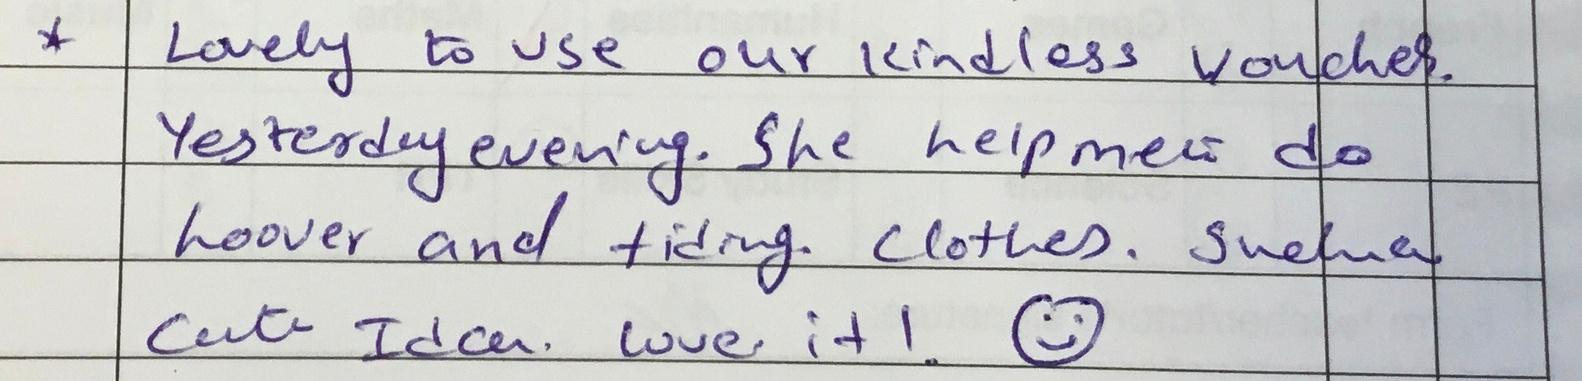 * Lovely to use our kindless voucher.
Yesterday evening. She help me to do
hoover and tiding. Clothes. Such a
cute Idea. Love it! ☺